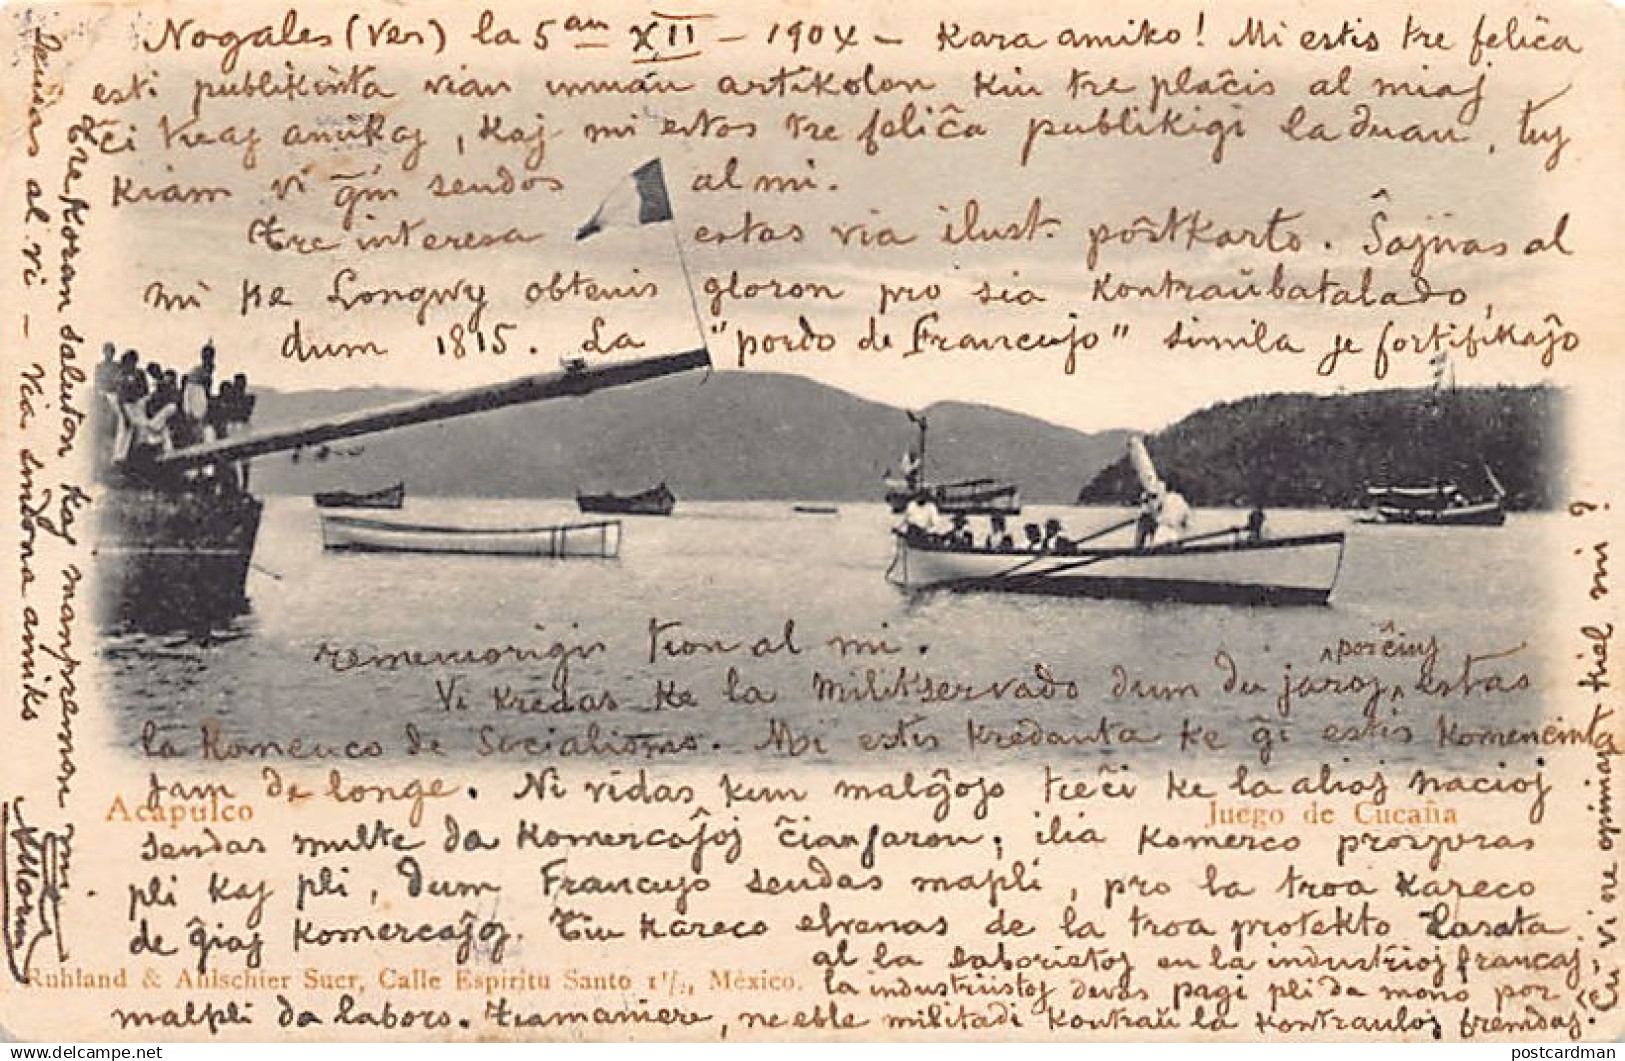 Nogales (Ver) la 5an XII - 1904 - Kara amiko! Mi estis tre feliĉa
esti publikinta vian unuan artikolon kiu tre plaĉis al miaj
ĉi tieaj amikaj, kaj mi estos tre feliĉa publikigi la duan, tuj
kiam vi ĝin sendos al mi.
Tre interesa estas via ilust. poŝtkarto. Ŝajnas al
mi ke Longwy obtenis gloron pro sia kontraŭbatalado,
dum 1815. La "pordo de Francujo" simila je fortifikaĵo
rememorigis tion al mi.
Vi kredas ke la militservado dum du jaroj, porĉiuj estas
la komenco de Socialismo. Mi estis kredanta ke ĝi estis komencinta
jam de longe. Ni vidas kun malĝojo tieĉi ke la aliaj nacioj
sendas multe da komercaĵoj ĉianjaron; ilia komerco prosperas
pli kaj pli, dum Francujo sendas malpli, pro la troa kareco
de ĝiaj komercaĵoj. Tiu kareco elvenas de la troa protekto lasata
al la laboristoj en la industrioj francaj,
la industriistoj devas pagi pli da mono por
malpli da laboro. Tiamaniere, ne eble militadi kontraŭ la kontrauloj fremdaj.
Ĉu vi ne opinias kiel mi?
Tre koran saluton kaj manpremon mi
sendas al vi - Via sindona amiko
Acapulco
Juego de Cucaña
Ruhland & Ahlschier Sucr, Calle Espiritu Santo 1½, México.
postcardman